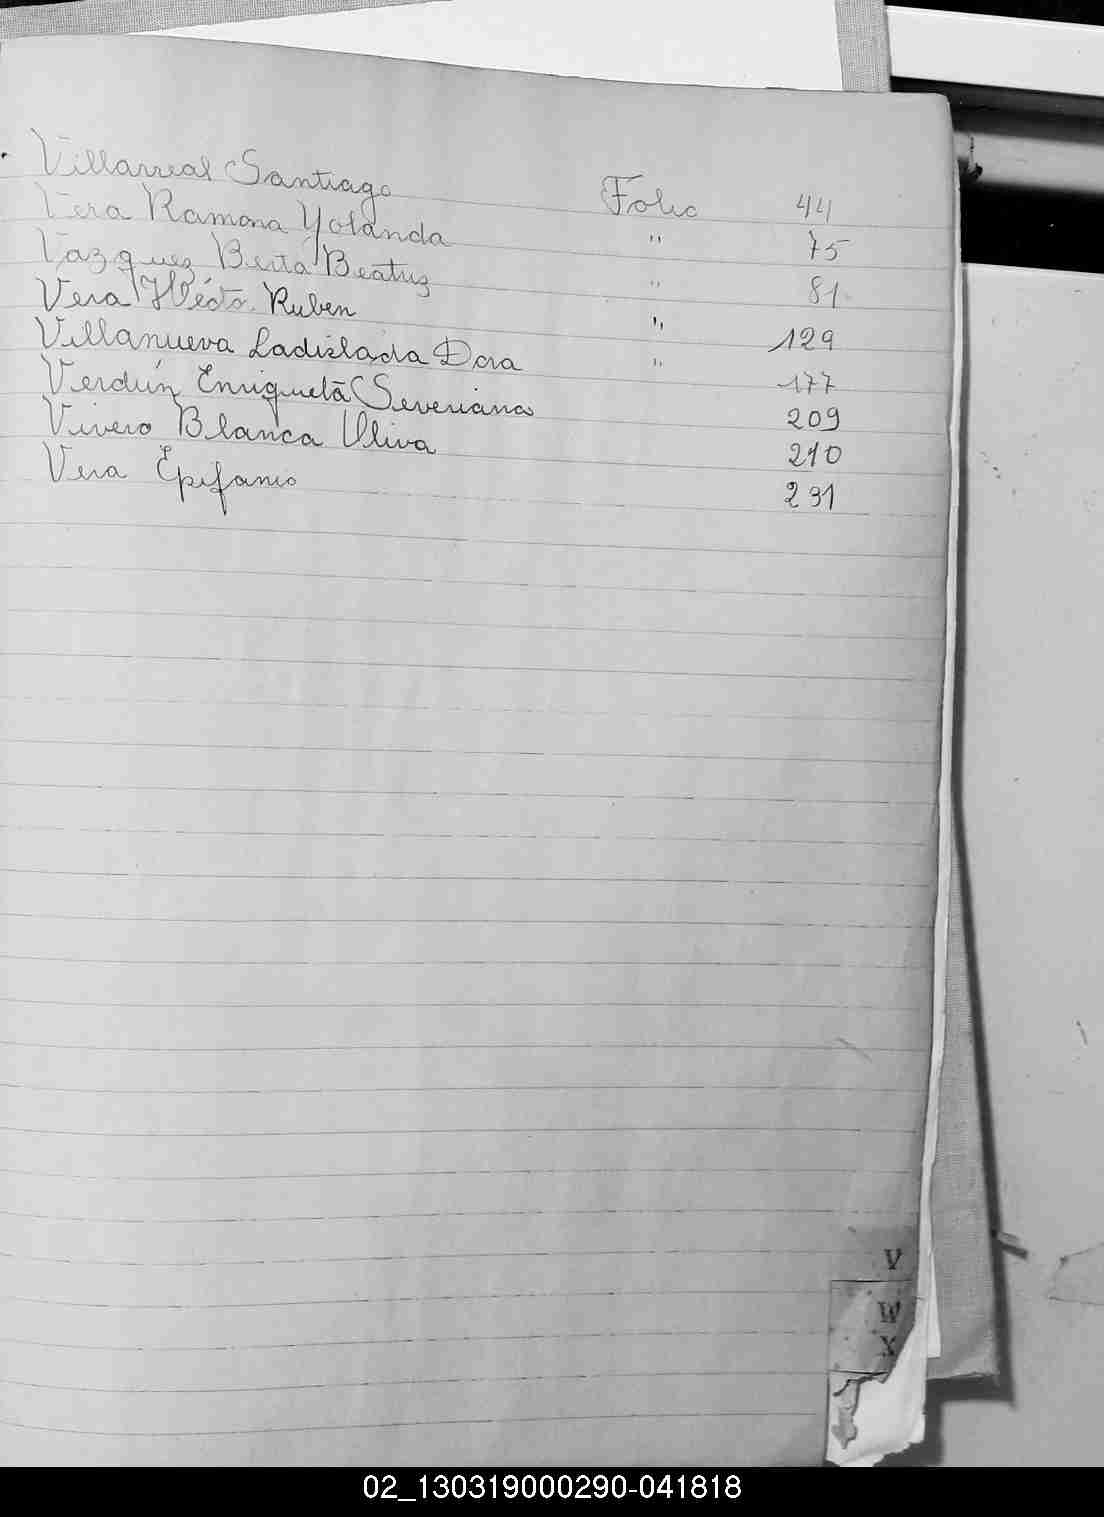 Villarreal Santiago Folio 44
Vera Ramona Yolanda " 75
Vazquez Berta Beatriz " 81
Vera Héctor Ruben " 129
Villanueva Ladislada Dora " 177
Verdún Enriqueta Severiana 209
Vivero Blanca Oliva 210
Vera Epifanio 231
V
W
X
02_130319000290-041818